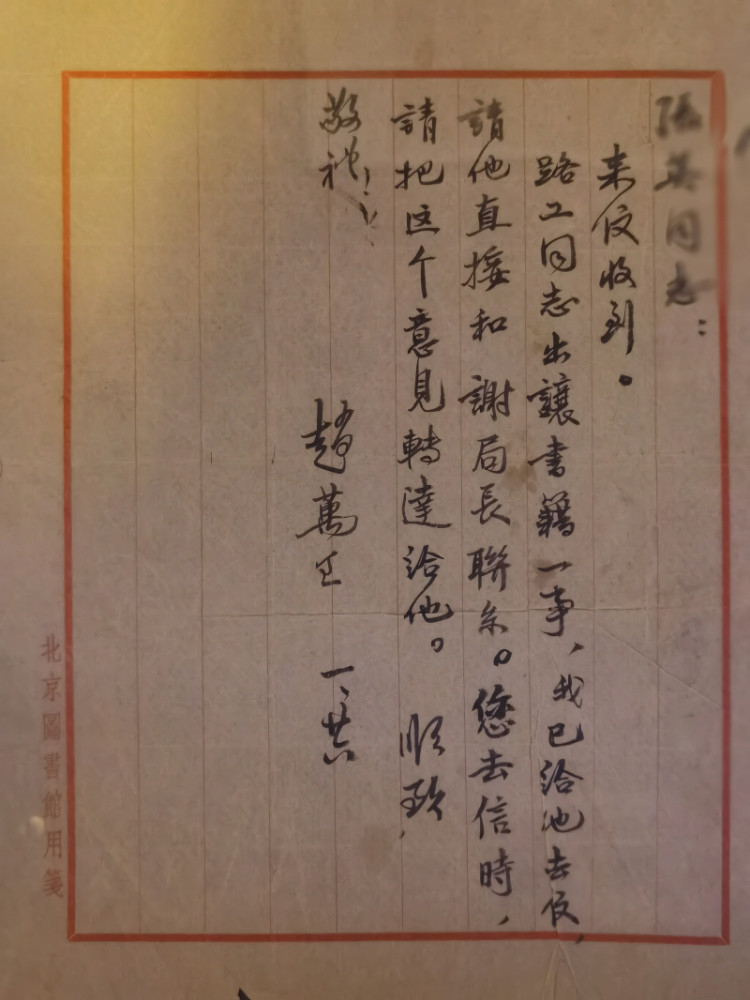 張英同志：
来伩收到。
路工同志出讓書籍一事、我已給他去伩，
請他直接和謝局長聯系。您去信時，
請把这个意見轉達給他。 順致，
敬礼！
趙萬里 一、廿六
北京圖書館用箋